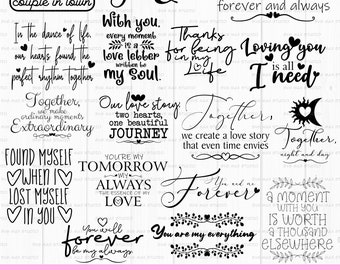 couple in town
forever and always
In the dance of life,
our hearts found the
perfect rhythm together
With you,
every moment
is a
love lebber
written to
my Soul.
Thanks
for being
in my
Life
Loving you
is all
I need
Together,
we make
ordinary moments
Extraordinary
Our love story:
two hearts,
one beautiful
JOURNEY
Together,
we create a love story
that even time envies
Together,
night and day
FOUND MYSELF
WHEN I
LOST MYSELF
IN YOU
YOU'RE MY
TOMORROW
MY
ALWAYS
THE ESSENCE OF MY
LOVE
You and me
Forever
A MOMENT
WITH YOU
IS WORTH
A THOUSAND
ELSEWHERE
You will
forever
be my always
You are my everything